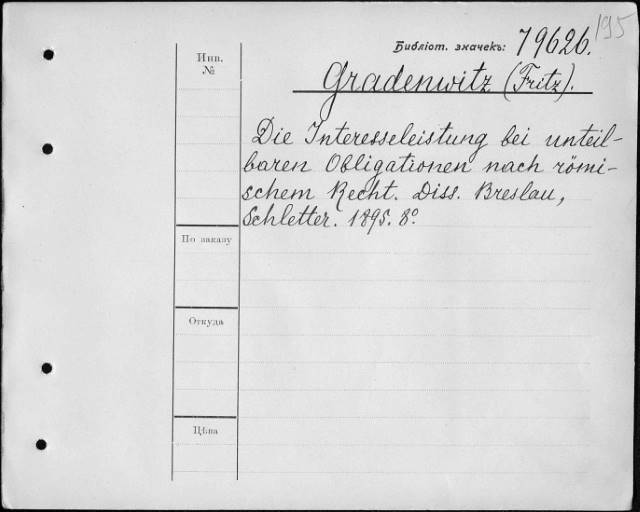 195
Библіот. значекъ: 79626.
Инв.
№
Gradenwitz (Fritz).
Die Interesseleistung bei unteil-
baren Obligationen nach römi-
schem Recht. Diss. Breslau,
Schletter. 1895. 8°.
По заказу
Откуда
Цѣна